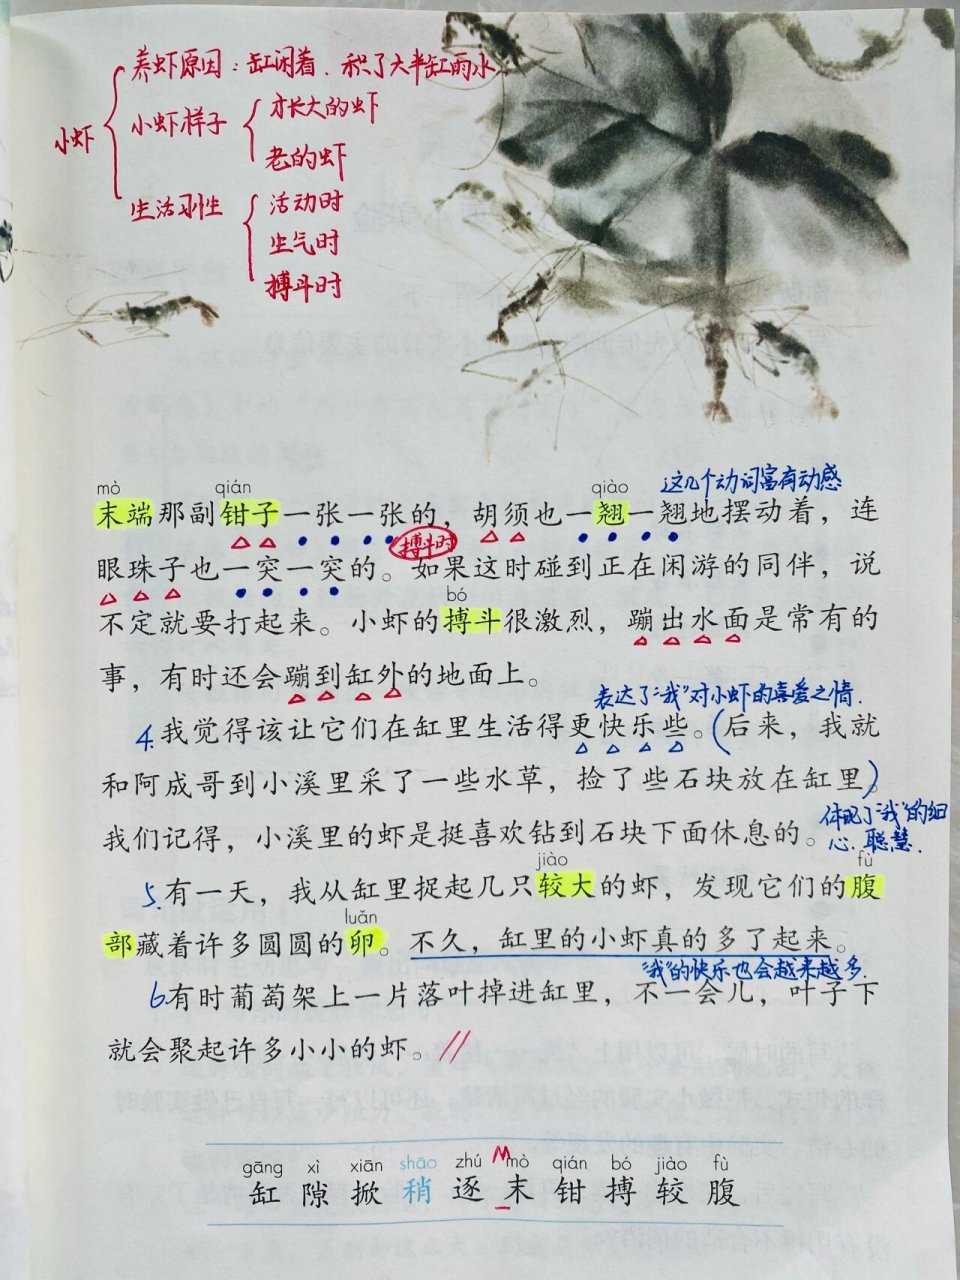 养虾原因：缸闲着．积了大半缸雨水
小虾
小虾样子
才长大的虾
老的虾
生活习性
活动时
生气时
搏斗时
mò qián qiào
这几个动词富有动感
末端那副钳子一张一张的，胡须也一翘一翘地摆动着，连
搏斗时
眼珠子也一突一突的。如果这时碰到正在闲游的同伴，说
bó
不定就要打起来。小虾的搏斗很激烈，蹦出水面是常有的
事，有时还会蹦到缸外的地面上。
表达了“我”对小虾的喜爱之情．
4.我觉得该让它们在缸里生活得更快乐些。（后来，我就
和阿成哥到小溪里采了一些水草，捡了些石块放在缸里）。
体现了“我”的细
我们记得，小溪里的虾是挺喜欢钻到石块下面休息的。
心．聪慧．
jiào fù
5.有一天，我从缸里捉起几只较大的虾，发现它们的腹
luǎn
部藏着许多圆圆的卵。不久，缸里的小虾真的多了起来。
“我”的快乐也会越来越多．
6.有时葡萄架上一片落叶掉进缸里，不一会儿，叶子下
就会聚起许多小小的虾。
gāng xì xiān shāo zhú mò qián bó jiào fù
缸 隙 掀 稍 逐 末 钳 搏 较 腹